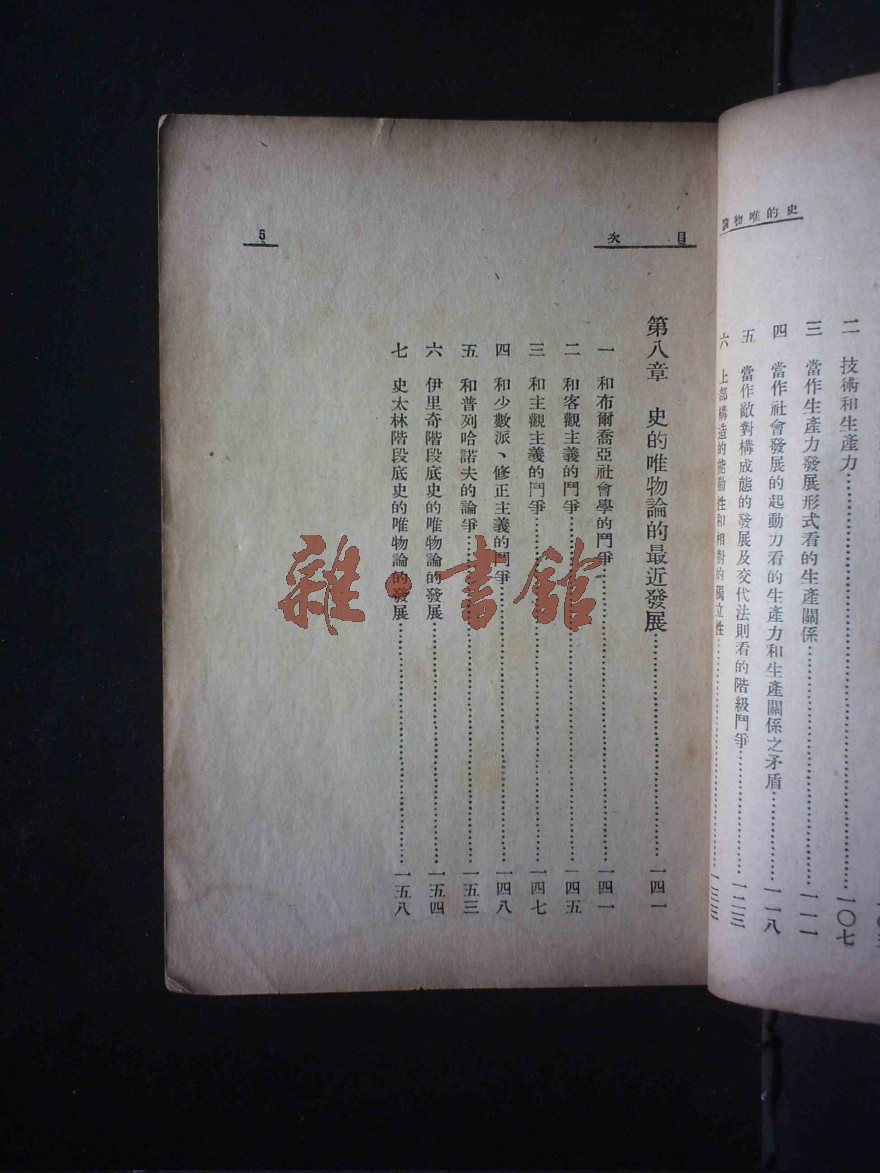 史的唯物論
二 技術和生產力……一〇七
三 當作生產力發展形式看的生產關係……一一一
四 當作社會發展的起動力看的生產力和生產關係之矛盾……一一八
五 當作敵對構成態的發展及交代法則看的階級鬥爭……一二三
六 上部構造的能動性和相對的獨立性……一三三
目次
5
第八章 史的唯物論的最近發展……一四一
一 和布爾喬亞社會學的鬥爭……一四一
二 和客觀主義的鬥爭……一四五
三 和主觀主義的鬥爭……一四七
四 和少數派、修正主義的鬥爭……一四八
五 和普列哈諾夫的論爭……一五三
六 伊里奇階段底史的唯物論的發展……一五四
七 史太林階段底史的唯物論的發展……一五八
雜·書館